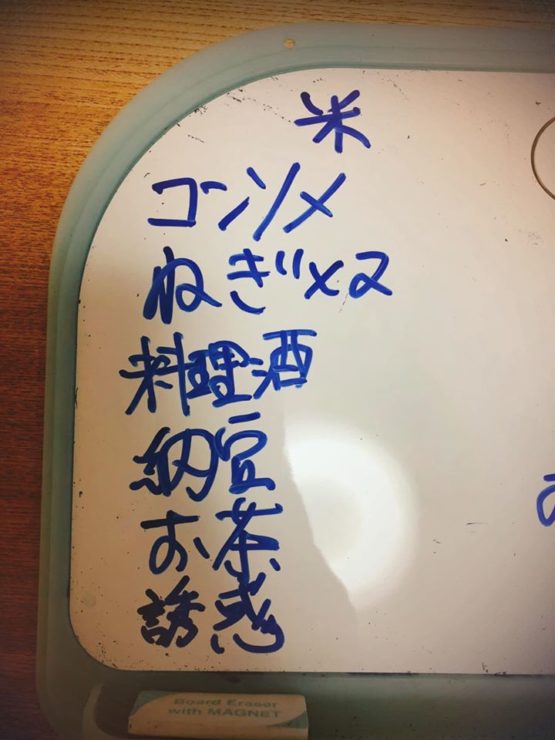 米
コンソメ
ねぎ×2
料理酒
納豆
お茶
誘惑
Board Eraser
with MAGNET